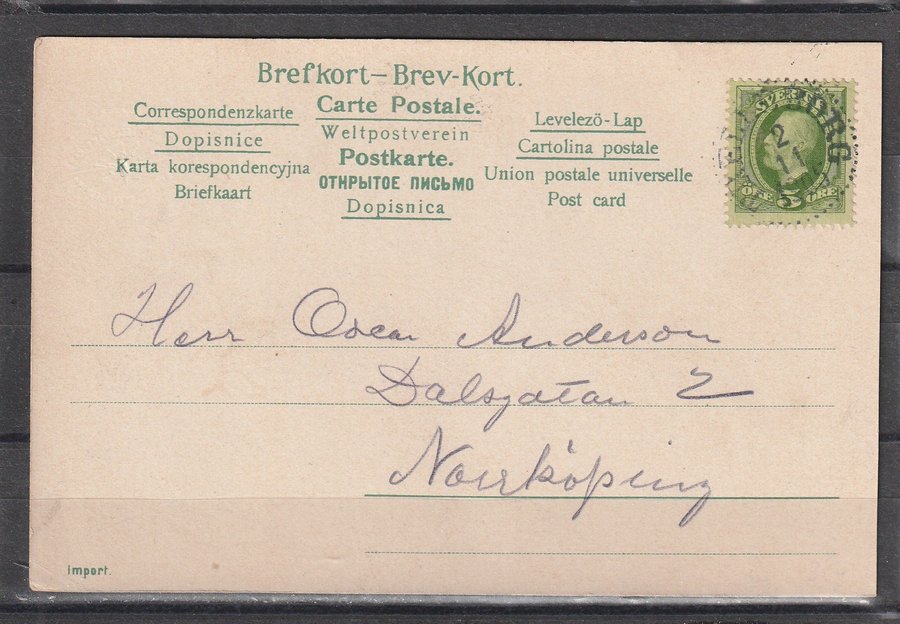 Brefkort – Brev-Kort.
Correspondenzkarte
Dopisnice
Karta korespondencyjna
Briefkaart
Carte Postale.
Weltpostverein
Postkarte.
ОТКРЫТОЕ ПИСЬМО
Dopisnica
Levelező-Lap
Cartolina postale
Union postale universelle
Post card
SVERIGE
RG
2
11
ÖRE 5 ÖRE
Herr Oscar Anderson
Dalsgatan 2
Norrköping
Import.